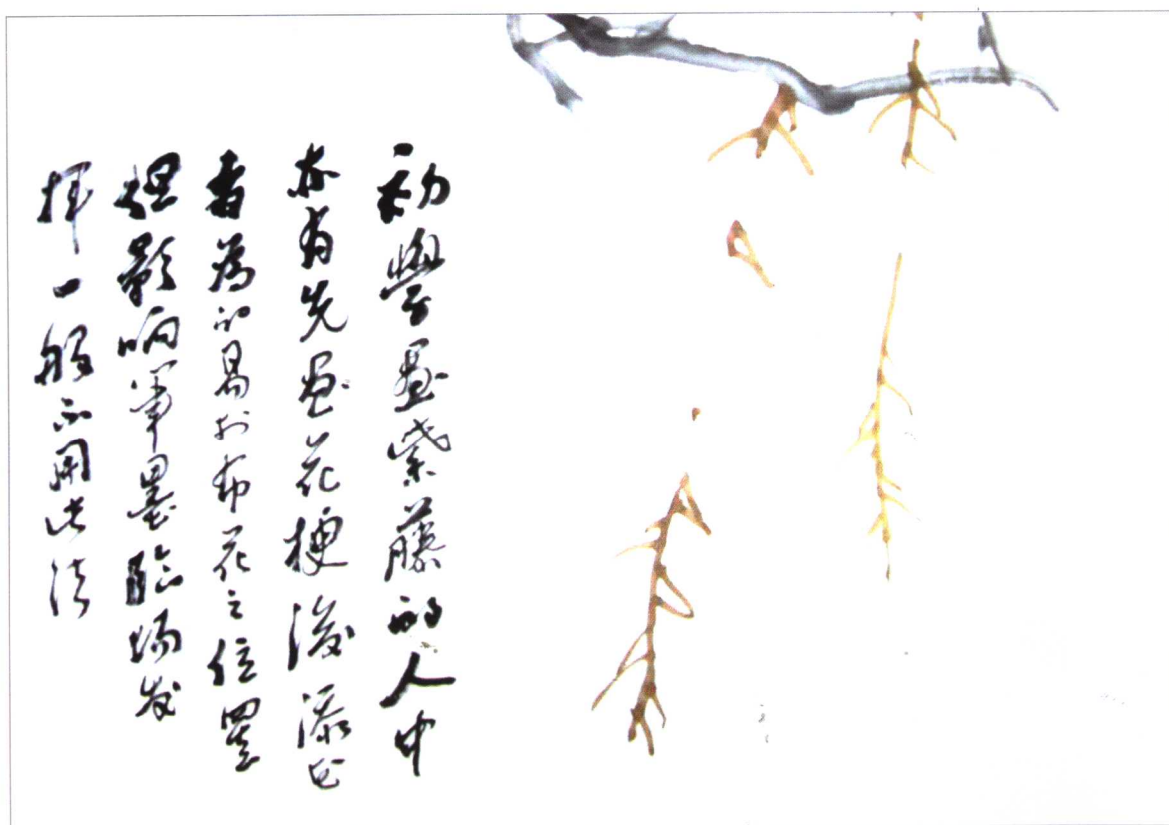 初学画紫藤的人中
亦有先画花梗後添花
者為的易於布花之位置
但影响笔墨臨場发
揮一般不用此法